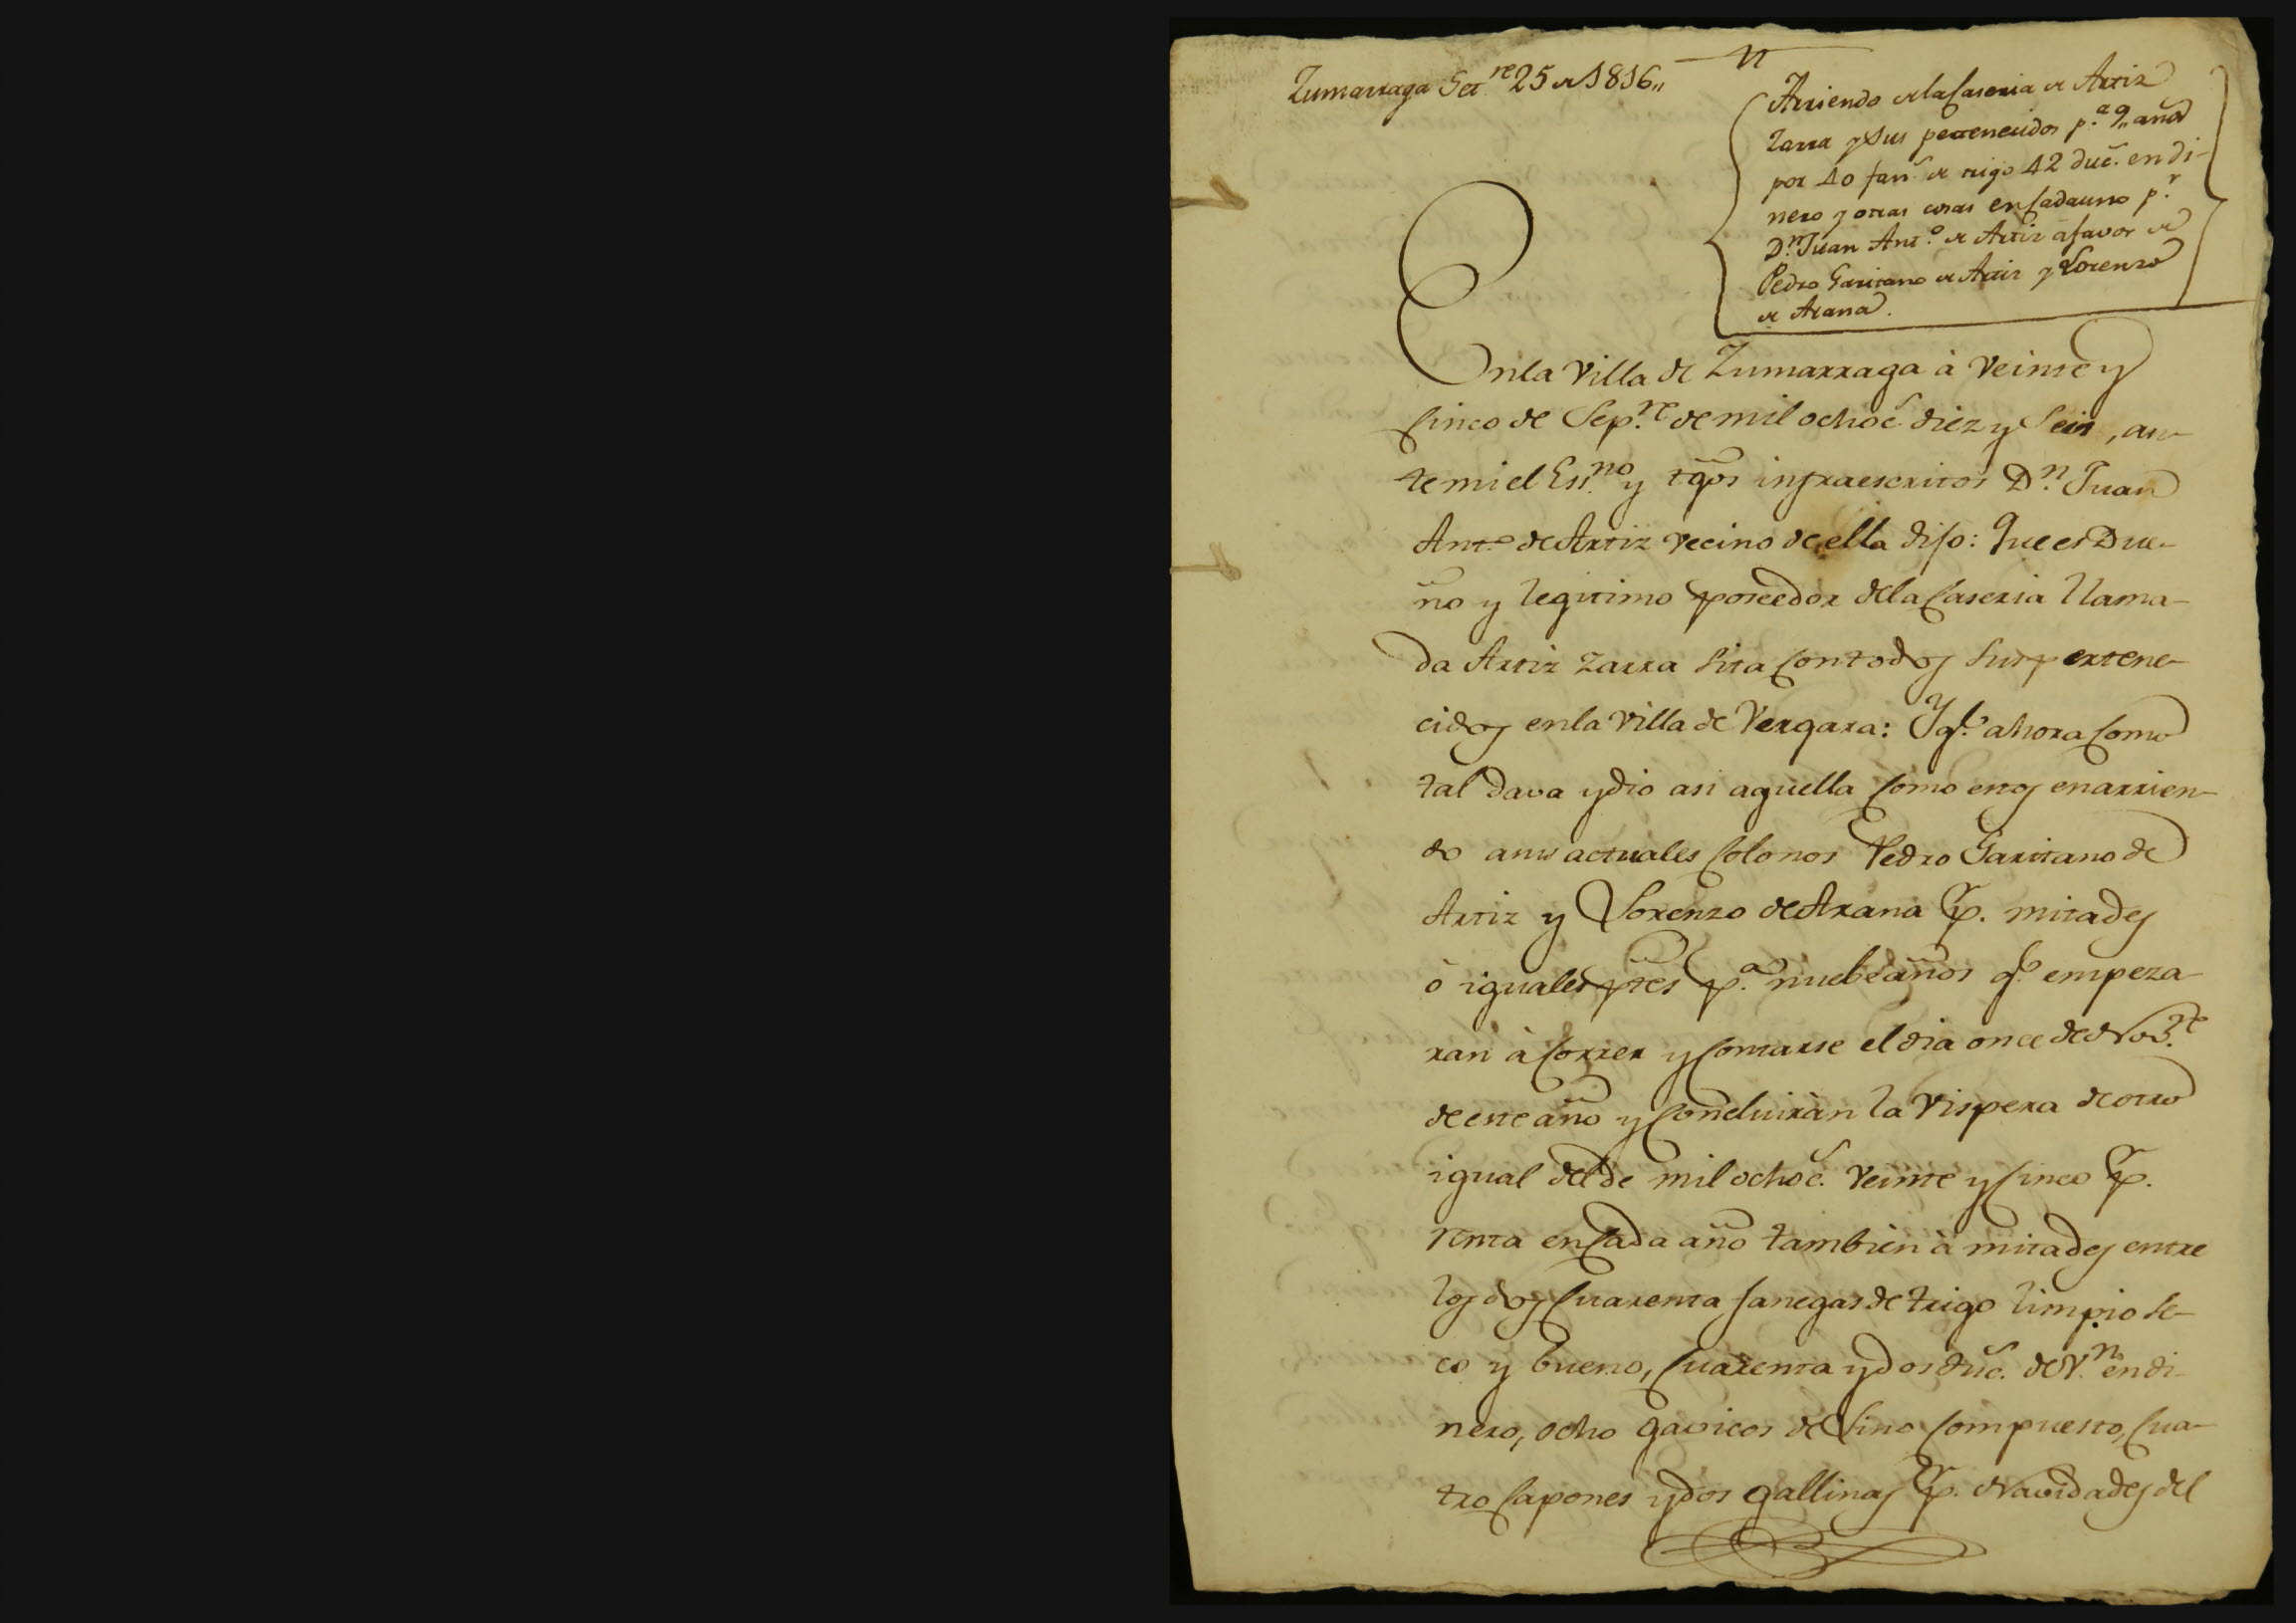 Zumarraga Set.re 25 de 1816,,
Arriendo de la Caseria de Artiz
zarra y sus pertenecidos p.a 9,, años
por 40 fan.s de trigo 42 duc.s en di-
nero y otras cosas en Cada uno p.r
D.n Juan Ant.o de Artiz a favor de
Pedro Garitano de Artiz y Lorenzo
de Arana.
En la Villa de Zumarraga à Veinte y
Cinco de Sep.re de mil ochoc.s diez y Seis, an-
te mi el Ess.no y tgõs infraescritos D.n Juan
Ant.o de Artiz vecino de ella dijo: Que es Due-
ño y legitimo poseedor de la Caseria llama-
da Artiz zarra sita Con todos sus pertene-
cidos en la Villa de Vergara: Y q.e ahora Como
tal dava y dio asi aquella Como estos en arrien-
do a sus actuales Colonos Pedro Garitano de
Artiz y Lorenzo de Arana p.r mitades
ò iguales ptes p.a nuebe años q.e empeza-
ran à Correr y Contarse el dia once de Nov.re
de este año y Concluiràn la Vispera de otro
igual del de mil ochoc.s Veinte y Cinco p.r
renta en Cada año tambien à mitades entre
los dos Cuarenta fanegas de trigo limpio se-
co y bueno, Cuarenta y dos duc.s de V.n en di-
nero, ocho gavicos de Lino Compuesto, Cua-
tro Capones y dos gallinas p.r Navidades del